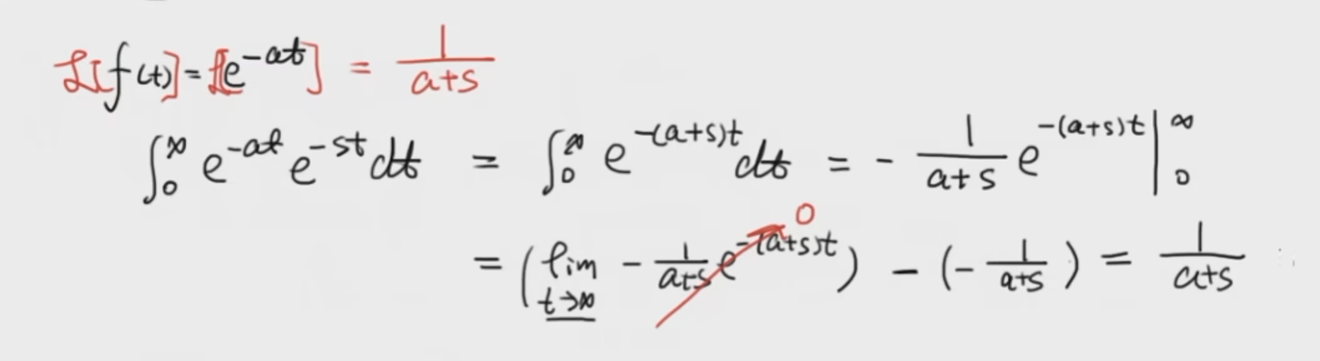 ℒ[f(t)] = ℒ[e^{-at}] = \frac{1}{a+s}
∫_0^∞ e^{-at} e^{-st} dt = ∫_0^∞ e^{-(a+s)t} dt = -\frac{1}{a+s} e^{-(a+s)t} |_0^∞
= (lim_{t→∞} -\frac{1}{a+s} e^{-(a+s)t}) - (-\frac{1}{a+s}) = \frac{1}{a+s}
0